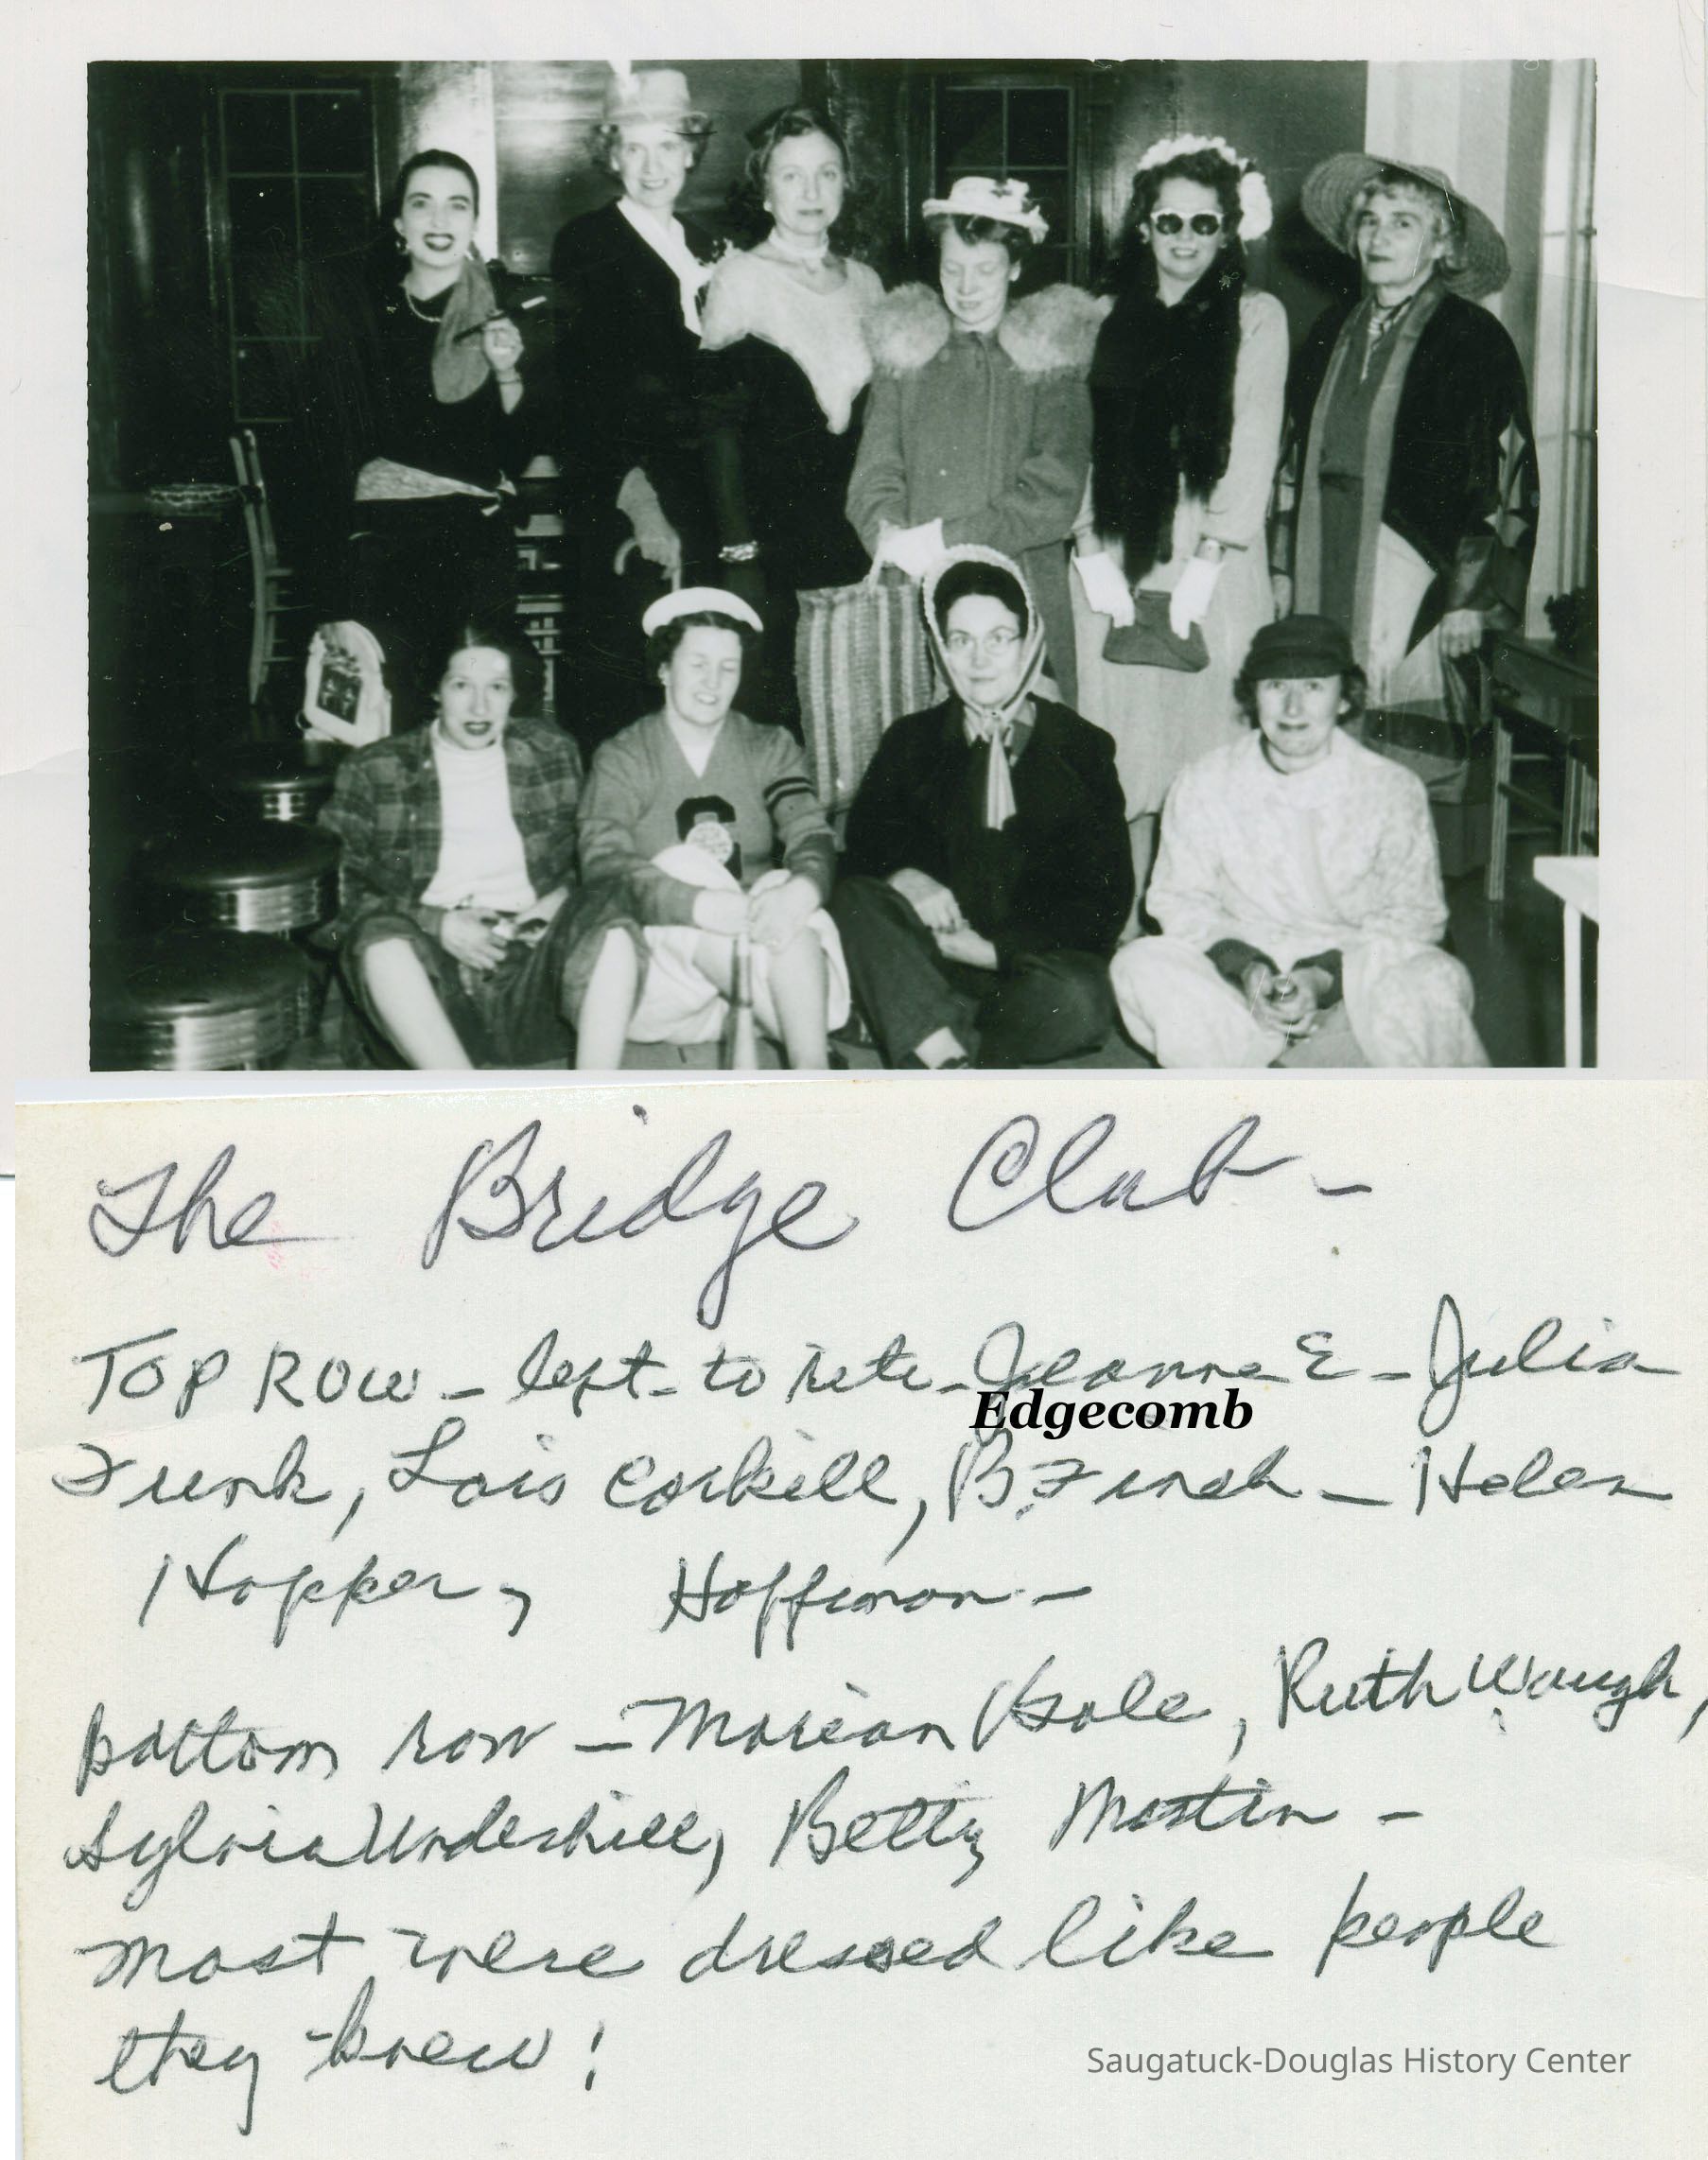 The Bridge Club -
TOP ROW - left - to rite - Jeanne E - Julia
Edgecomb
Funk, Lois Corkill, B. Finch - Helen
Hopper, Hoffman -
bottom row - Marian Hale, Ruth Waugh,
Sylvia Underhill, Betty Martin -
most were dressed like people
they knew!
Saugatuck-Douglas History Center